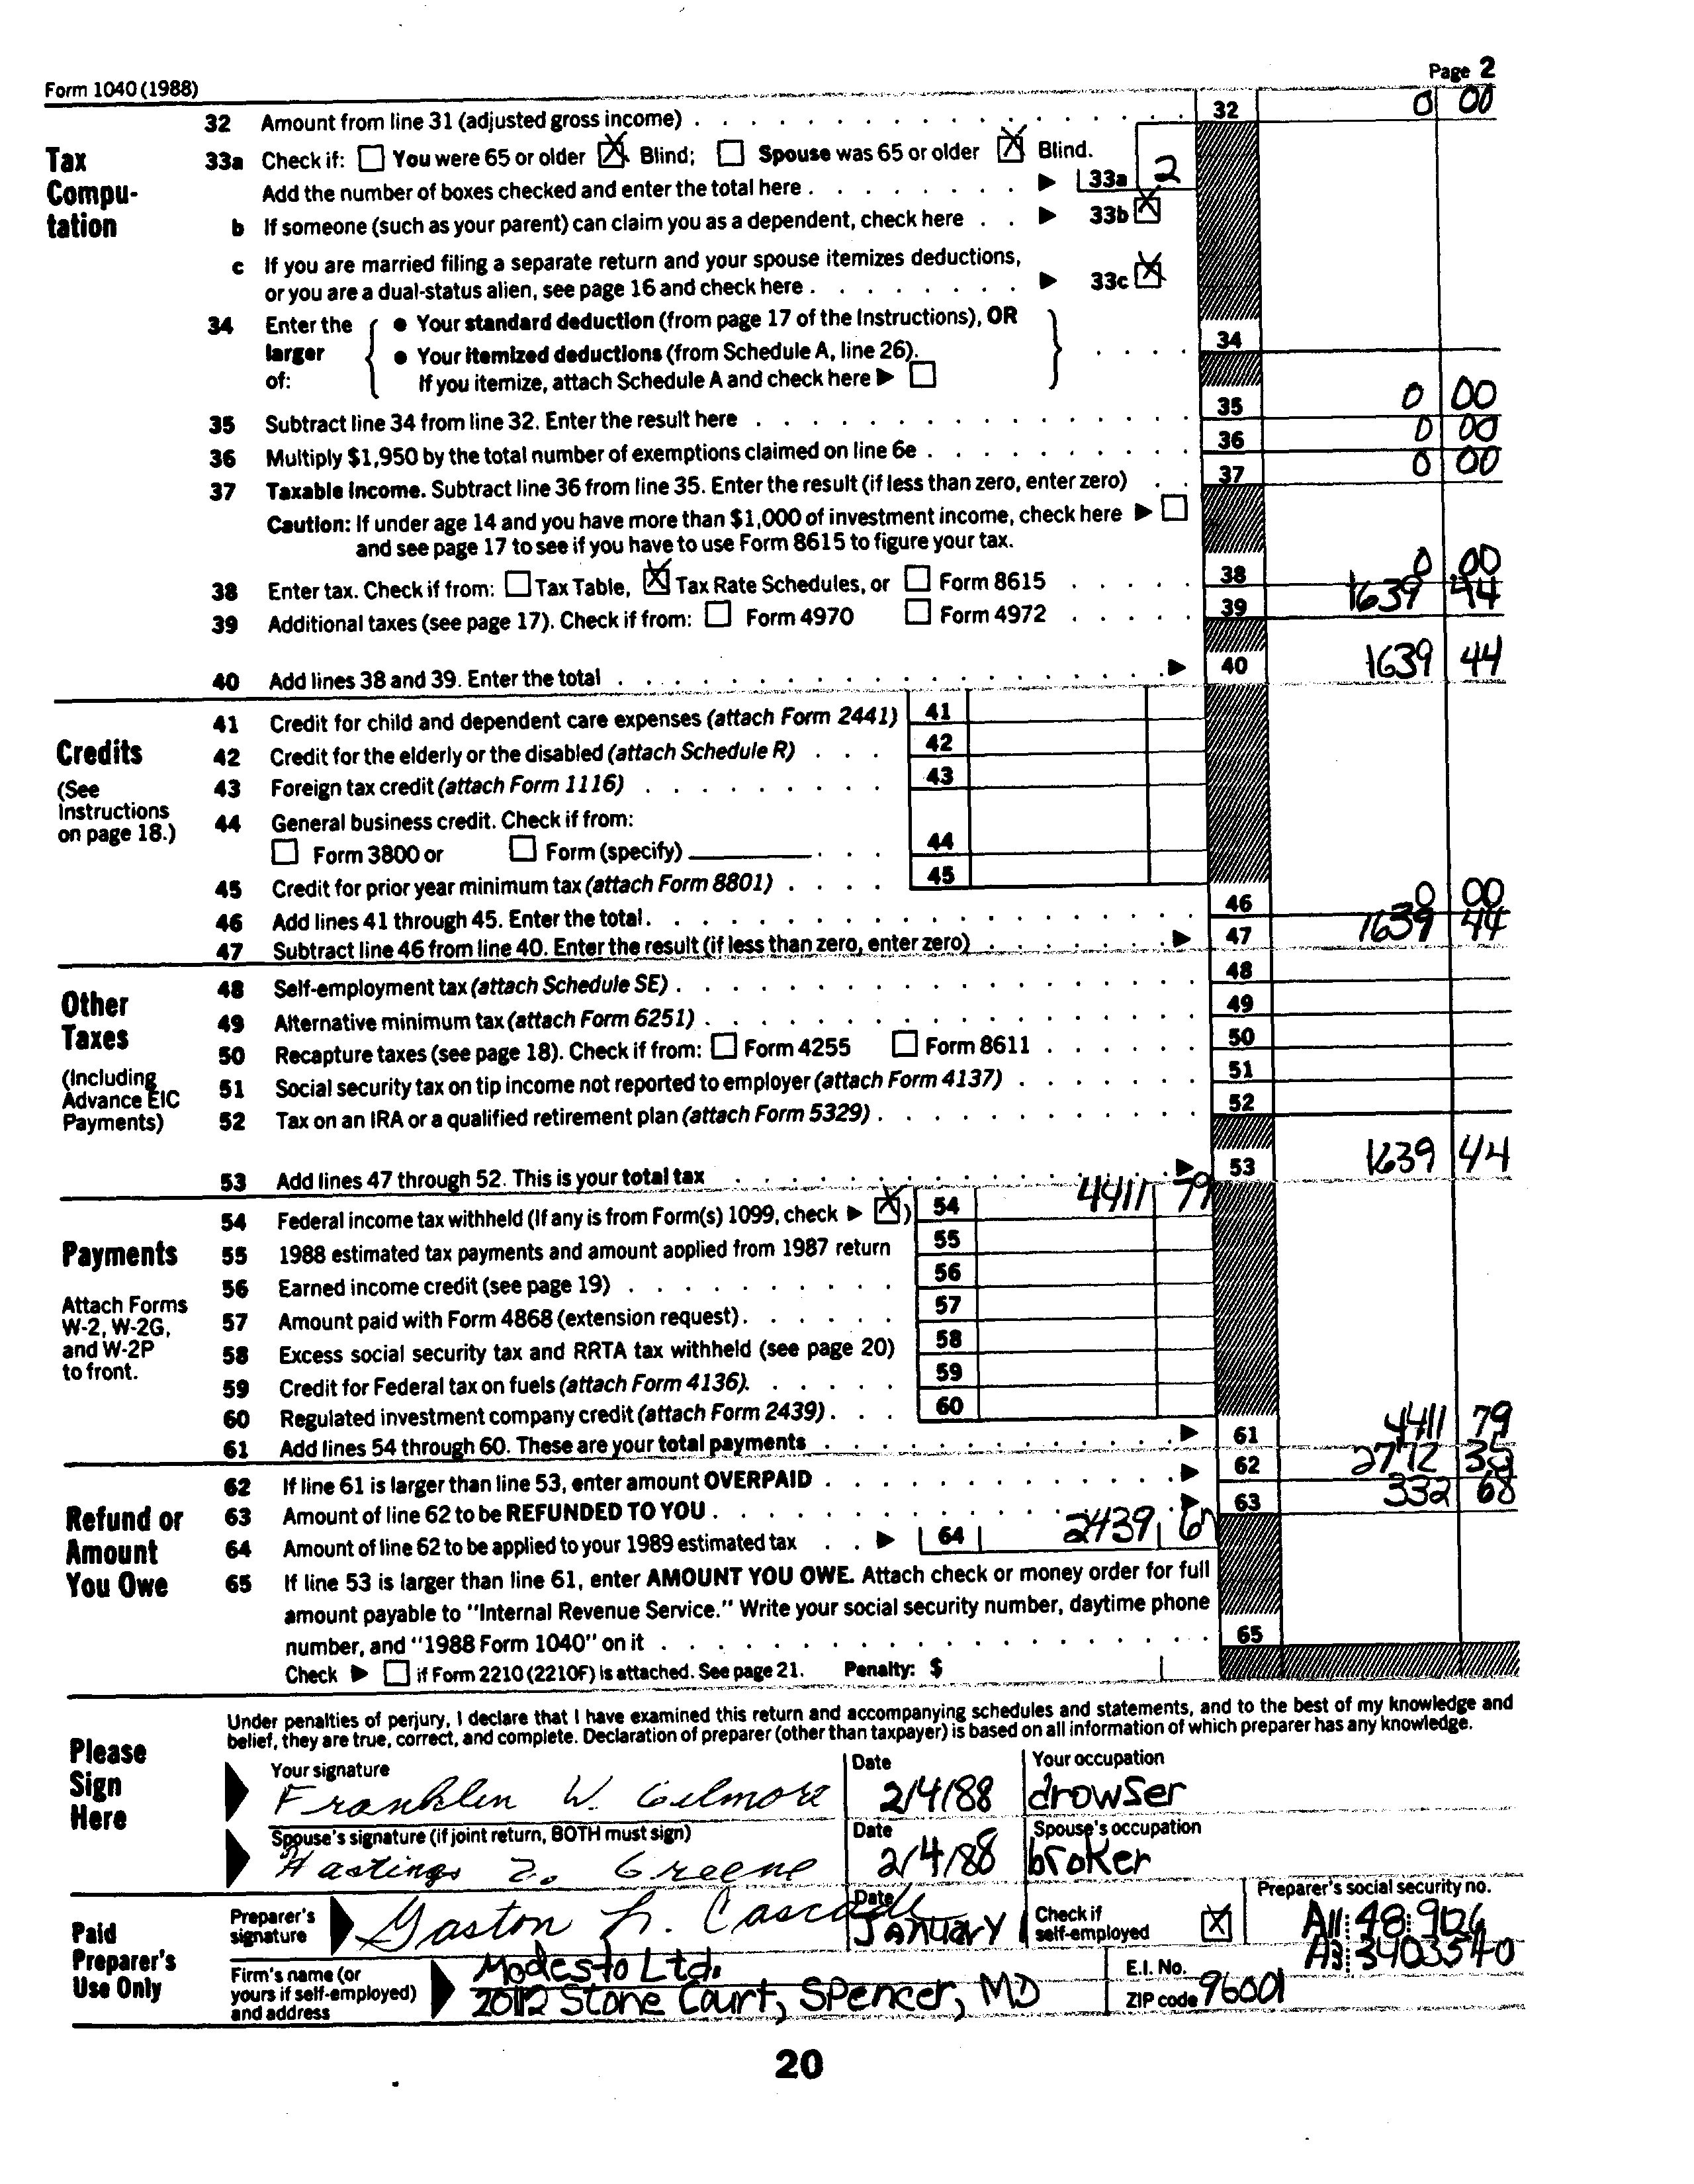 Form 1040 (1988) Page 2
32 Amount from line 31 (adjusted gross income) 32 0 00
Tax Compu-tation
33a Check if: You were 65 or older X Blind; Spouse was 65 or older X Blind.
Add the number of boxes checked and enter the total here 33a 2
b If someone (such as your parent) can claim you as a dependent, check here 33b X
c If you are married filing a separate return and your spouse itemizes deductions,
or you are a dual-status alien, see page 16 and check here 33c X
34 Enter the larger of: • Your standard deduction (from page 17 of the Instructions), OR
• Your itemized deductions (from Schedule A, line 26). 34
If you itemize, attach Schedule A and check here
35 Subtract line 34 from line 32. Enter the result here 35 0 00
36 Multiply $1,950 by the total number of exemptions claimed on line 6e 36 0 00
37 Taxable income. Subtract line 36 from line 35. Enter the result (if less than zero, enter zero) 37 0 00
Caution: If under age 14 and you have more than $1,000 of investment income, check here
and see page 17 to see if you have to use Form 8615 to figure your tax.
38 Enter tax. Check if from: Tax Table, X Tax Rate Schedules, or Form 8615 38 0 00
39 Additional taxes (see page 17). Check if from: Form 4970 Form 4972 39 1639 44
40 Add lines 38 and 39. Enter the total 40 1639 44
Credits
(See Instructions on page 18.)
41 Credit for child and dependent care expenses (attach Form 2441) 41
42 Credit for the elderly or the disabled (attach Schedule R) 42
43 Foreign tax credit (attach Form 1116) 43
44 General business credit. Check if from:
Form 3800 or Form (specify) 44
45 Credit for prior year minimum tax (attach Form 8801) 45
46 Add lines 41 through 45. Enter the total. 46 0 00
47 Subtract line 46 from line 40. Enter the result (if less than zero, enter zero) 47 1639 44
Other Taxes
(Including Advance EIC Payments)
48 Self-employment tax (attach Schedule SE) 48
49 Alternative minimum tax (attach Form 6251) 49
50 Recapture taxes (see page 18). Check if from: Form 4255 Form 8611 50
51 Social security tax on tip income not reported to employer (attach Form 4137) 51
52 Tax on an IRA or a qualified retirement plan (attach Form 5329) 52
53 Add lines 47 through 52. This is your total tax 53 1639 44
Payments
Attach Forms W-2, W-2G, and W-2P to front.
54 Federal income tax withheld (If any is from Form(s) 1099, check X) 54 4411 79
55 1988 estimated tax payments and amount applied from 1987 return 55
56 Earned income credit (see page 19) 56
57 Amount paid with Form 4868 (extension request) 57
58 Excess social security tax and RRTA tax withheld (see page 20) 58
59 Credit for Federal tax on fuels (attach Form 4136). 59
60 Regulated investment company credit (attach Form 2439) 60
61 Add lines 54 through 60. These are your total payments 61 4411 79
Refund or Amount You Owe
62 If line 61 is larger than line 53, enter amount OVERPAID 62 2772 35
63 Amount of line 62 to be REFUNDED TO YOU 63 332 68
64 Amount of line 62 to be applied to your 1989 estimated tax 64 2439 67
65 If line 53 is larger than line 61, enter AMOUNT YOU OWE. Attach check or money order for full
amount payable to "Internal Revenue Service." Write your social security number, daytime phone
number, and "1988 Form 1040" on it 65
Check if Form 2210 (2210F) is attached. See page 21. Penalty: $
Please Sign Here
Under penalties of perjury, I declare that I have examined this return and accompanying schedules and statements, and to the best of my knowledge and
belief, they are true, correct, and complete. Declaration of preparer (other than taxpayer) is based on all information of which preparer has any knowledge.
Your signature Date Your occupation
Franklin W. Gilmore 2/4/88 drowser
Spouse's signature (if joint return, BOTH must sign) Date Spouse's occupation
Hastings Z. Greene 2/4/88 broker
Paid Preparer's Use Only
Preparer's signature Gaston L. Cascade Date January Check if self-employed X Preparer's social security no. A11:48:9026
Firm's name (or yours if self-employed) and address Modesto Ltd. E.I. No. A3:3403540
2012 Stone Court, Spencer, MD ZIP code 96001
20